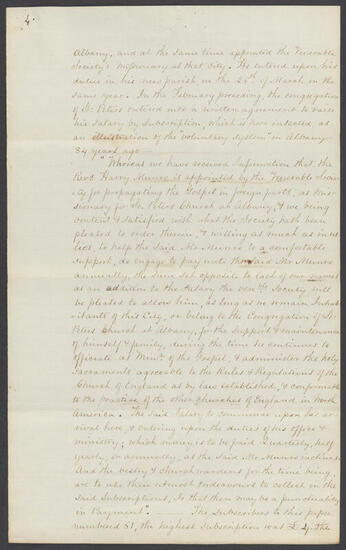 4.
Albany, and at the same time appointed the Venerable
Society's Missionary at that City. He entered upon his
duties in his new parish on the 25th of March in the
same year. In the February preceding, the congregation
of St. Peters entered into a written agreement to raise
his salary by Subscription, which is here inserted as
an illustration of the "voluntary system" in Albany
84 years ago —
"Whereas we have received Information that the
Revd. Harry Munro is appointed by the Venerable Socie-
ty for propagating the Gospel in foreign parts, as Miss-
ionary for St. Peters Church at Albany, & we being
content & Satisfied with what the Society hath been
pleased to order therein, & willing as much as in us
lies, to help the Said Mr Munro to a comfortable
support, do engage to pay unto the said Mr Munro
annually, the Sum set opposite to each of our names
as an addition to the Salary the ven. Society will
be pleased to allow him, as long as we remain Inhab-
itants of this City, or belong to the Congregation of St.
Peters Church at Albany, for the Support & maintenance
of himself & family, during the time he continues to
officiate as Minr. of the Gospel, & administer the holy
Sacraments agreeable to the Rules & Regulations of the
Church of England as by law established, & conformable
to the practice of the other churches of England in North
America. The Said Salary to commence upon his ar-
rival here, & entering upon the duties of his office &
ministry, which money is to be paid Quarterly, half
yearly, or annually, as the Said Mr Munro inclines
And the vestry & church wardens for the time being,
are to use their utmost endeavours to collect in the
Said Subscriptions, So that there may be a punctuality
in Payment" — The Subscribers to this paper
numbered 51, the highest Subscription was £4. the